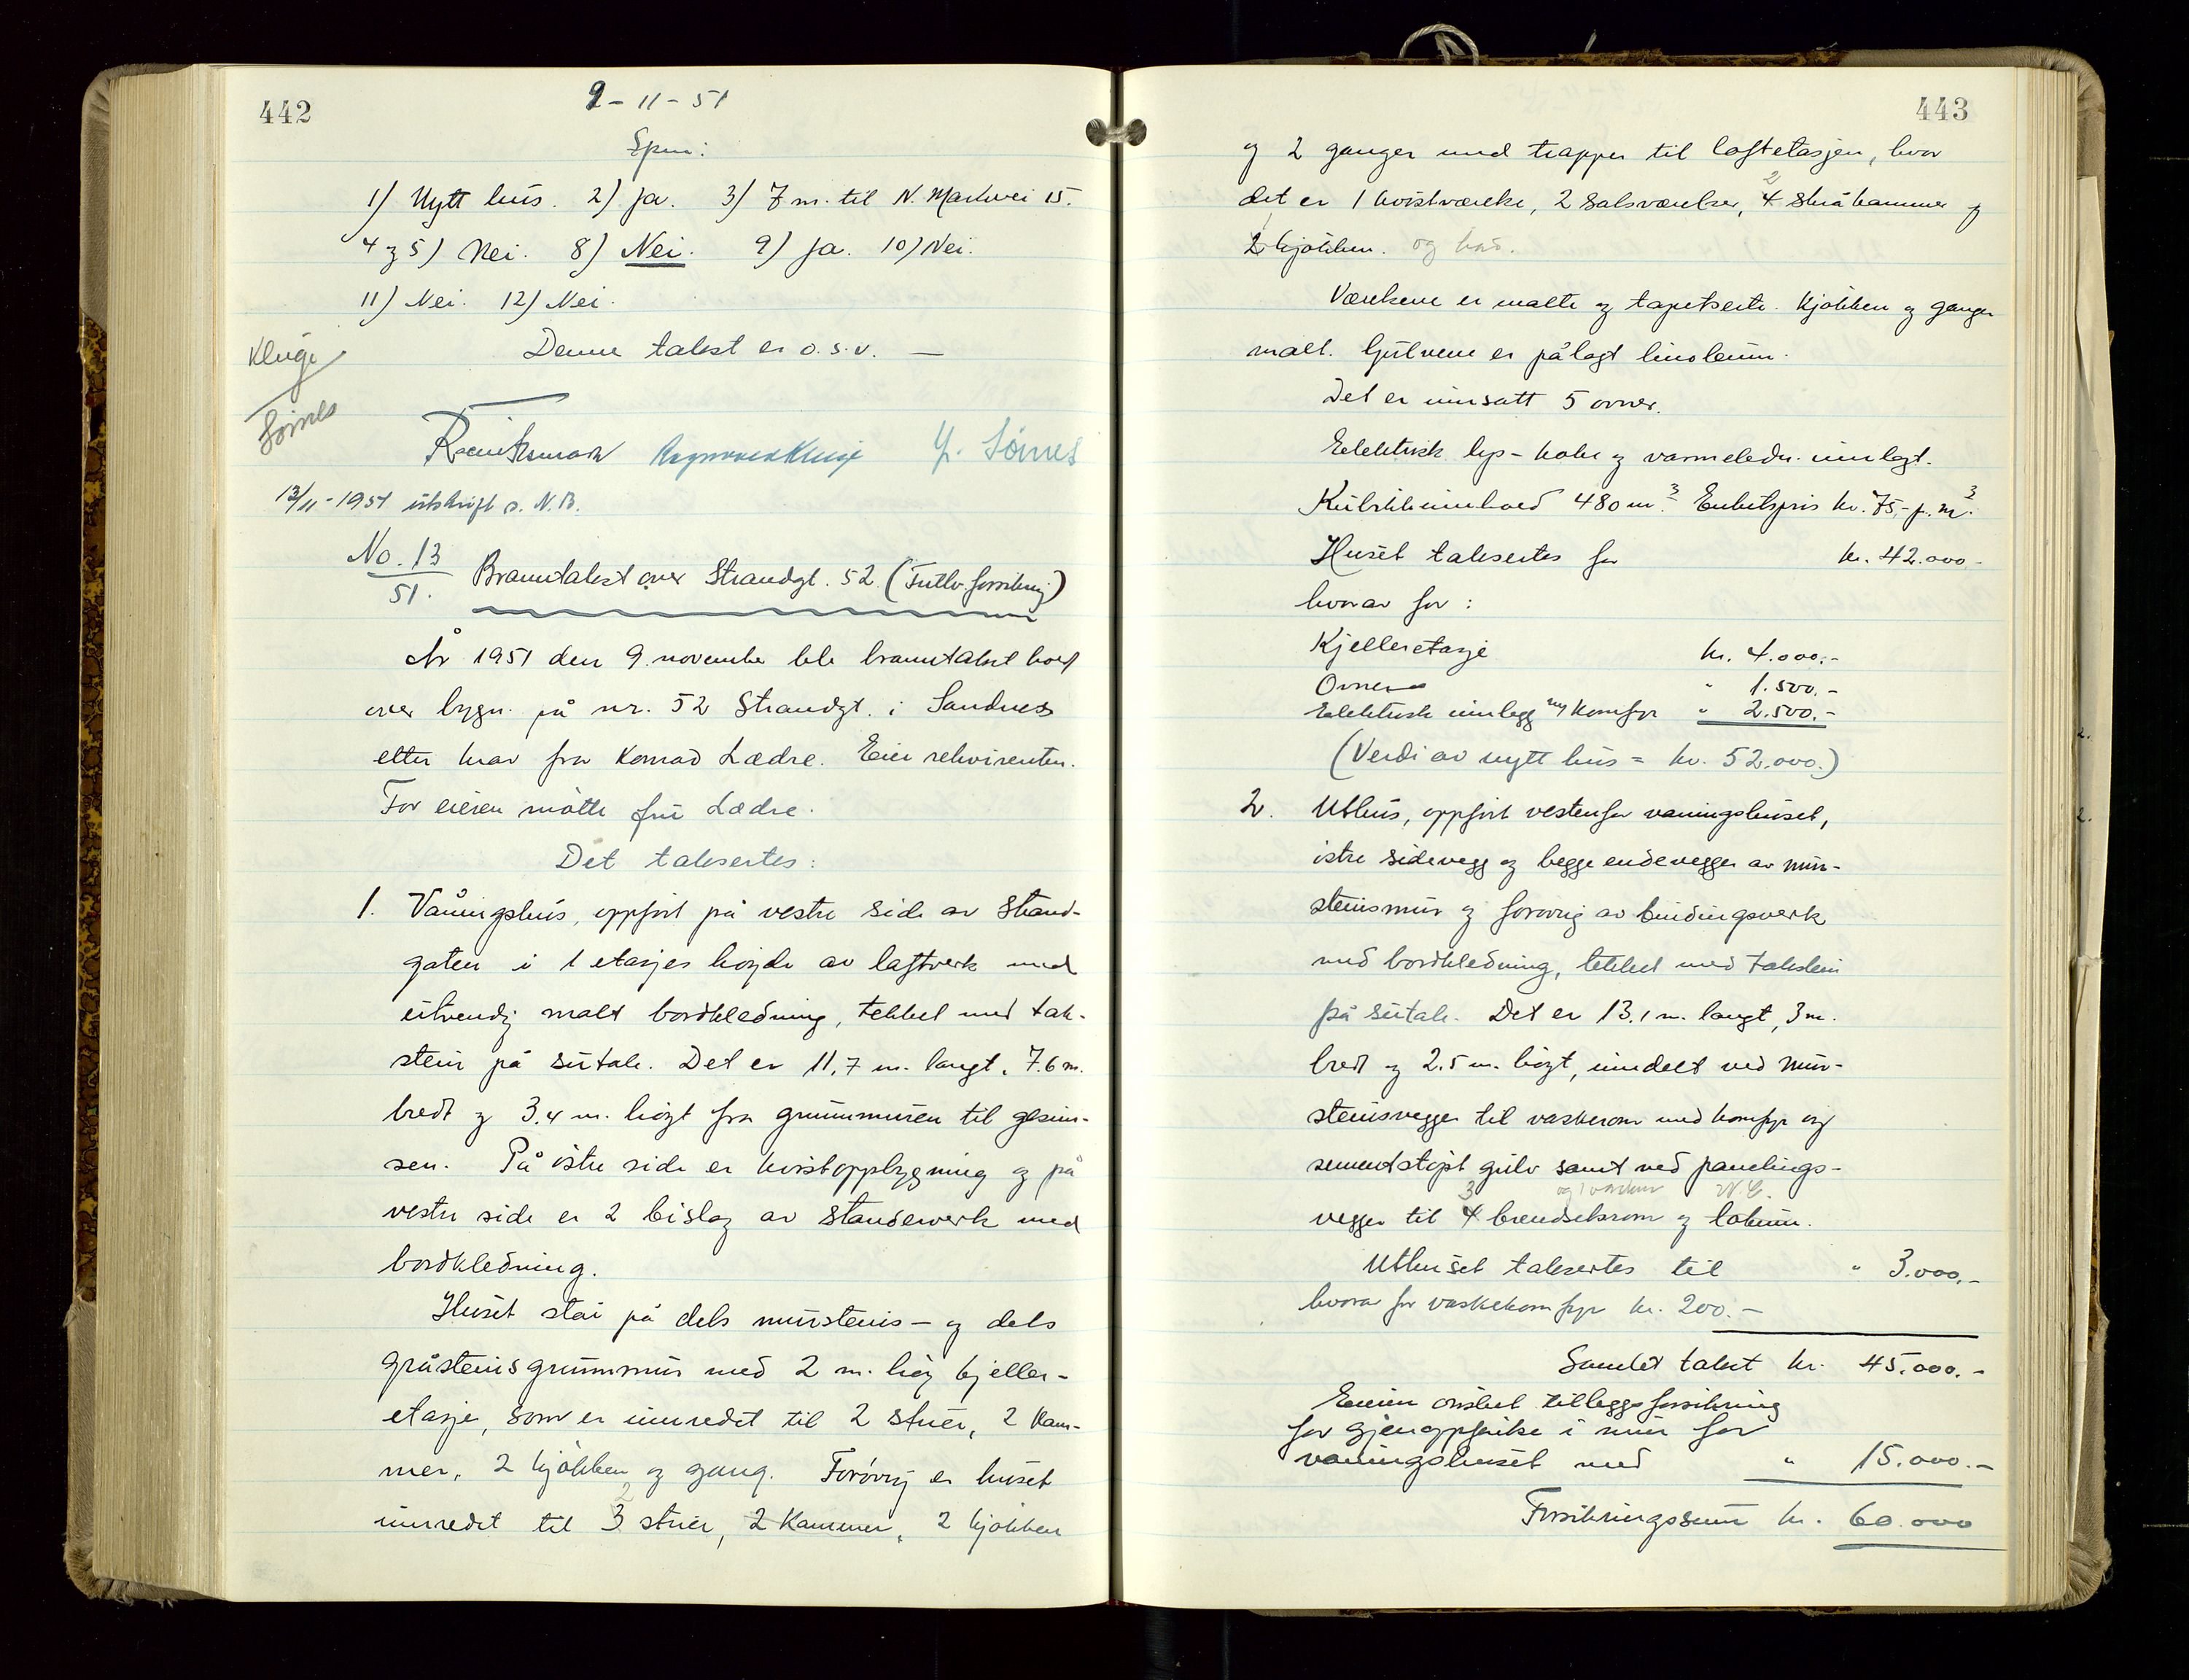 442
9-11-51
Spm:
1) Nytt hus. 2) Ja. 3) 7 m. til N. Markvei 15.
4 og 5) Nei. 8) Nei. 9) Ja. 10) Nei.
11) Nei. 12) Nei.
Denne takst er o.s.v. —
Kluge
Sömes
Kluge Sömes
13/11-1951 utskrift s. N.B.
No. 13/51. Branntakst over Strandgt. 52 (Frilv. forsikring)
År 1951 den 9. november ble branntakst hold
over bygn. på nr. 52 Strandgt. i Sandnes
etter krav fra Konrad Lædre. Eier rekvirenten.
For eieren møtte fru Lædre.
Det takseres:
1. Våningshus, oppført på vestre side av Strand-
gaten i 1 etasjes høyde av laftverk med
utvendig malt bordkledning, tekket med tak-
stein på sutak. Det er 11,7 m. langt, 7.6 m.
bredt og 3.4 m. høgt fra grunnmuren til gesim-
sen. På østre side er kvistoppbygning og på
vestre side er 2 bislag av standerverk med
bordkledning.
Huset står på dels murstens- og dels
gråstens grunnmur med 2 m. høy kjeller-
etasje, som er innredet til 2 stuer, 2 kam-
mer, 2 kjøkken og gang. Forøvrig er huset
innredet til 3 2 stuer, 2 Kammer, 2 kjøkken
443
og 2 ganger med trapper til loftetasjen, hvor
det er 1 kvistværelse, 2 Salsværelser, 4 2 skråkammer og
2 kjøkken. og bad.
Værelsene er malte og tapetserte. Kjøkken og ganger
malt. Gulvene er pålagt linoleum.
Det er innsatt 5 ovner.
Elektrisk lys- koke og varmeledn. innlagt.
Kubikkinnhold 480 m³. Enhetspris kr. 75,- p. m³.
Huset takseres for kr. 42.000.-
hvorav for:
Kjelleretasje kr. 4.000.-
Ovner " 1.500.-
Elektrisk innlegg og komfyr " 2.500.-
(Verdi av nytt hus = kr. 52.000.)
2. Uthus, oppført vestenfor våningshuset,
østre sidevegg og begge endevegger av mur-
steinsmur og forøvrig av bindingsverk
med bordkledning, tekket med takstein
på sutak. Det er 13,1 m. langt, 3 m.
bredt og 2.5 m. høgt, inndelt ved mur-
steinsvegger til vaskerom med komfyr og
sementstøpt gulv samt ved panelings-
og 1 vaskerom W.C.
vegger til 4 3 brendselsrom og lokum.
Uthuset takseres til " 3.000,-
hvorav for vaskekomfyr kr. 200.-
Samlet takst kr. 45.000.-
Eieren ønsket tilleggsforsikring
for gjenoppførelse i mur for
våningshuset med " 15.000.-
Forsikringssum kr. 60.000